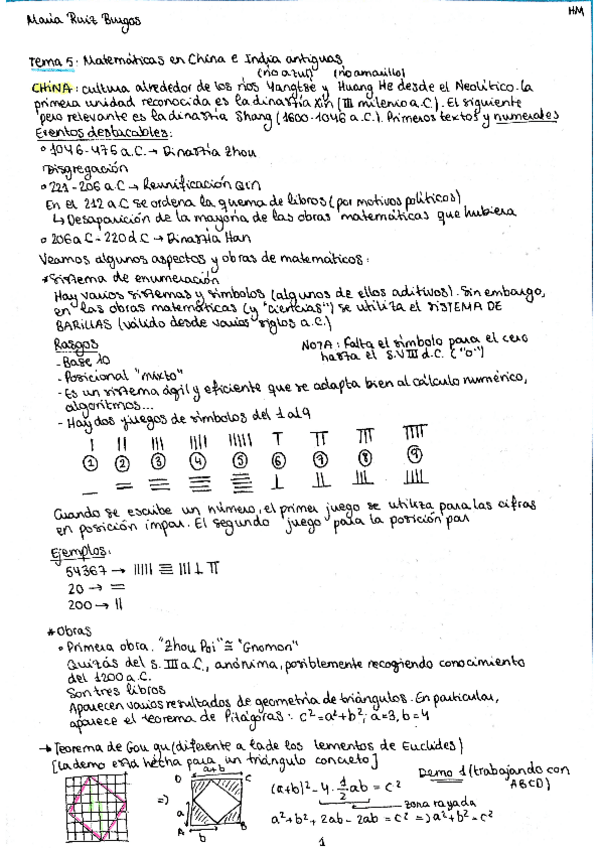 HM
Maria Ruiz Burgos
Tema 5: Matemáticas en China e India antiguas
(río azul) (río amarillo)
CHINA: cultura alrededor de los ríos Yangtse y Huang He desde el Neolítico. La
primera unidad reconocida es la dinastía Xin (III milenio a.C). El siguiente
pero relevante es la dinastía Shang (1600-1046 a.C). Primeros textos y numerales
Eventos destacables:
° 1046-476 a.C. → Dinastía Zhou
Disgregación
° 221-206 a.C → Reunificación Qin
En el 212 a.C se ordena la quema de libros (por motivos políticos)
↳ Desaparición de la mayoría de las obras matemáticas que hubiera
° 206 a C - 220 d C → Dinastía Han
Veamos algunos aspectos y obras de matemáticos:
*Sistema de enumeración
Hay varios sistemas y símbolos (algunos de ellos aditivos). Sin embargo,
en las obras matemáticas (y "ciencias") se utiliza el SISTEMA DE
BARILLAS (válido desde varios siglos a.C.)
Rasgos
NOTA: Falta el símbolo para el cero
hasta el S.VIII d.C. ("0")
- Base 10
- Posicional "mixto"
- Es un sistema ágil y eficiente que se adapta bien al cálculo numérico,
algoritmos...
- Hay dos juegos de símbolos del 1 al 9
① ② ③ ④ ⑤ ⑥ ⑦ ⑧ ⑨
Cuando se escribe un número, el primer juego se utiliza para las cifras
en posición impar. El segundo juego para la posición par
Ejemplos:
54367 → ||||| ≣ ||| ⊥ TT
20 → =
200 → ||
* Obras
° Primera obra. "Zhou Pei" ≅ "Gnomon"
Quizás del S. III a.C., anónima, posiblemente recogiendo conocimiento
del 1200 a.C.
Son tres libros
Aparecen varios resultados de geometría de triángulos. En particular,
aparece el teorema de Pitágoras: c²=a²+b², a=3, b=4
→ Teorema de Gou gu (diferente a la de los Elementos de Euclides)
[La demo está hecha para un triángulo concreto]
Demo 1 (trabajando con
ABCD)
D a+b C
=)
a
A b B
(a+b)² - 4·½ab = c²
zona rayada
a²+b²+2ab-2ab = c² =) a²+b²=c²
1